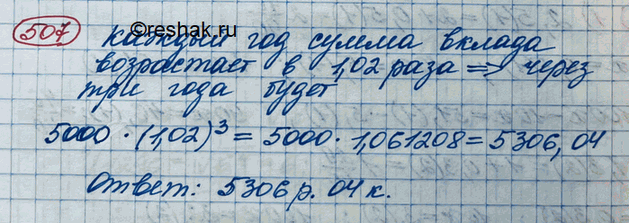 ©reshak.ru
507 Каждый год сумма вклада
возрастает в 1,02 раза => через
три года будет
5000 · (1,02)³ = 5000 · 1,061208 = 5306,04
Ответ: 5306 р. 04 к.